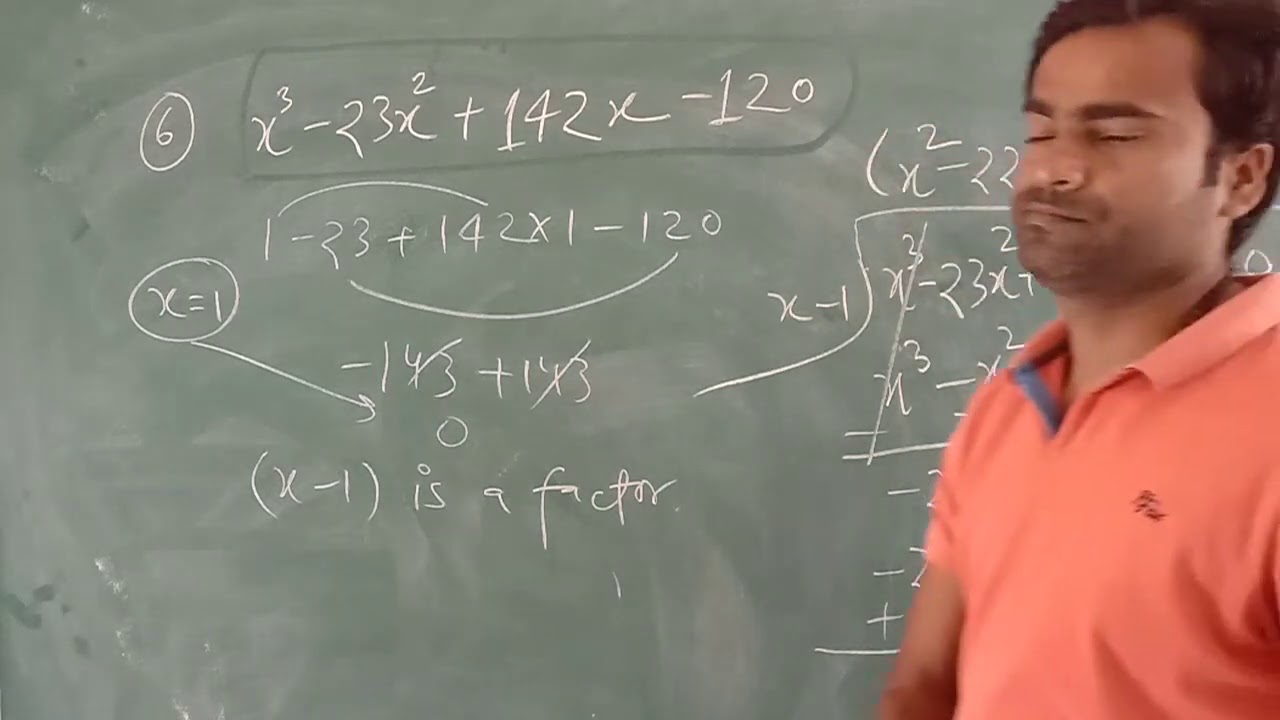 ⑥ x³ - 23x² + 142x - 120
1 - 23 + 142x1 - 120
x=1
-143 + 143
0
(x-1) is a factor.
(x² - 22
x-1) x³ - 23x² +
x³ - x²
-2
-2
+